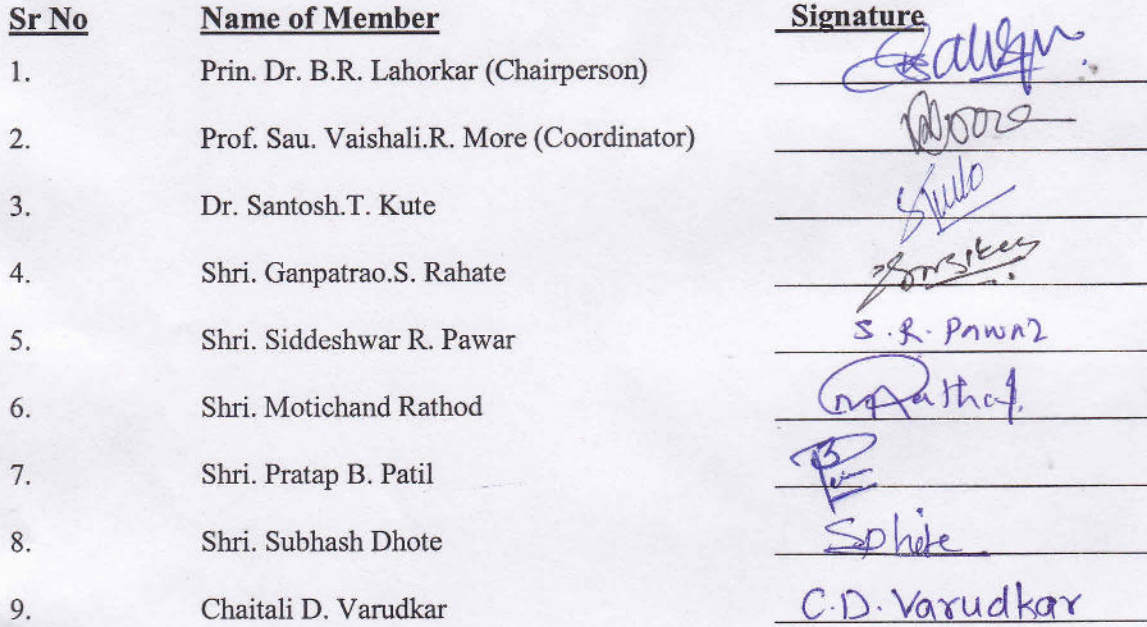 Sr No Name of Member Signature
1. Prin. Dr. B.R. Lahorkar (Chairperson)
2. Prof. Sau. Vaishali.R. More (Coordinator) More
3. Dr. Santosh.T. Kute
4. Shri. Ganpatrao.S. Rahate
5. Shri. Siddeshwar R. Pawar S.R. Pawar
6. Shri. Motichand Rathod
7. Shri. Pratap B. Patil
8. Shri. Subhash Dhote SDhote
9. Chaitali D. Varudkar C.D. Varudkar